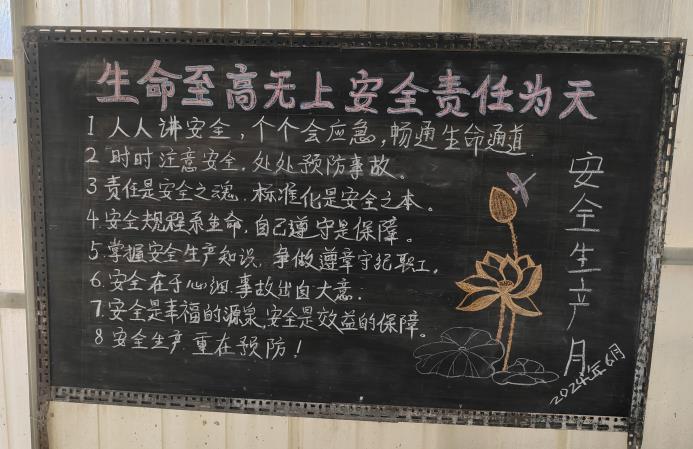 生命至高无上安全责任为天
1 人人讲安全，个个会应急，畅通生命通道.
2 时时注意安全.处处预防事故。
3 责任是安全之魂.标准化是安全之本。
4.安全规程系生命,自己遵守是保障。
5.掌握安全生产知识.争做遵章守纪职工.
6.安全在于心细.事故出自大意.
7.安全是幸福的源泉,安全是效益的保障。
8 安全生产.重在预防!
安全生产月
2024年6月